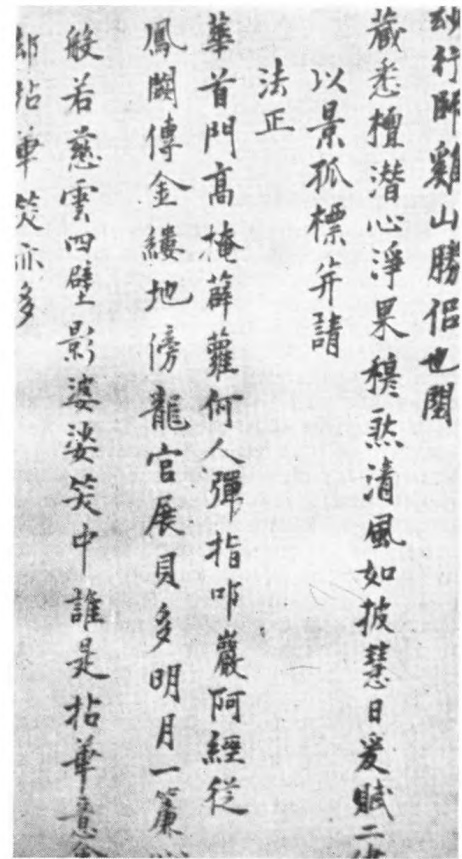 玅行師雞山勝侶也閱
藏悉檀潛心淨果穆然清風如披慧日爰賦二
以景孤標并請
法正
華首門高掩薜蘿何人彈指叩巖阿經從
鳳闕傳金縷地傍龍宮展貝多明月一簾
般若慈雲四壁影婆娑笑中誰是拈華意
却拈華笑亦多